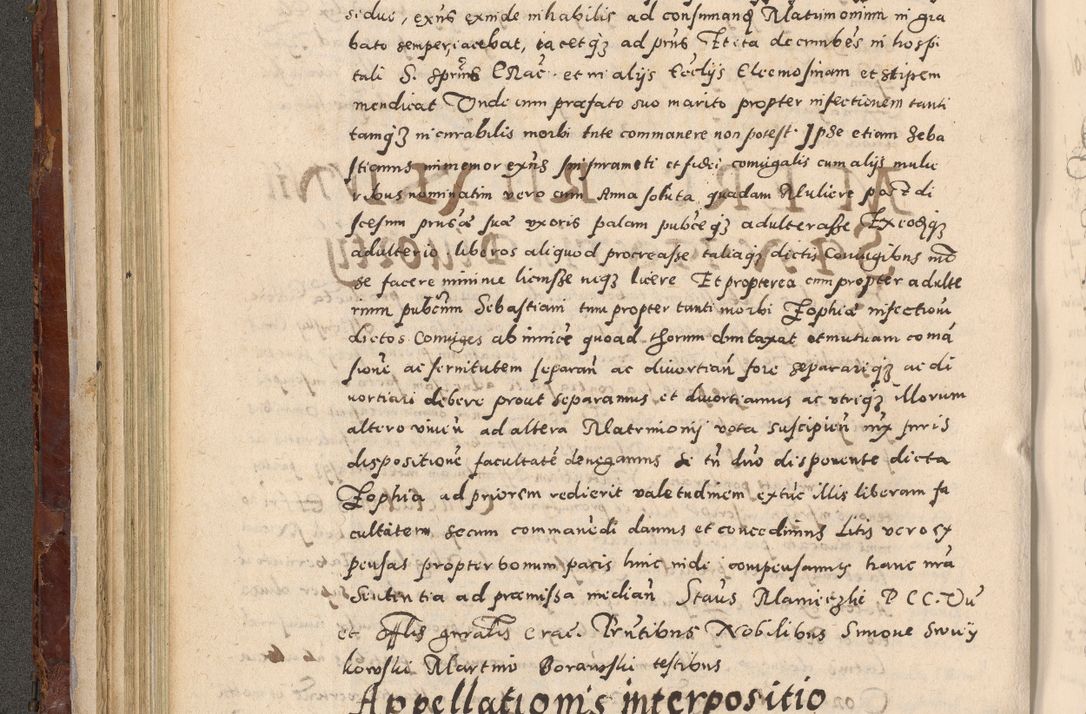 sedus, exns exinde inhabilis ad consumandū Matrimonium in gra
bato semper iacebat, iacetq3 ad prns Et ita decumbēs in hospi
tali S. Sprūs Crac. et in alijs Ecclijs Eleemosinam et stipem
mendicat Unde cum præfato suo marito propter infectionem tanti
tamq3 incurabilis morbi tute commanere non potest. Ipse etiam Seba
stianus immemor exns sui iurameti et fidei coniugalis cum alijs mulie
ribus nominatim vero cum Anna soluta, quadam Muliere post di
scesum prnsæ suæ vxoris palam publceq3 adulterasse Ex eoq3
adulterio, liberos aliquod procreasse taliaq3 dictis Coniugibus
se facere minime licuisse neq3 licere Et propterea cum propter adulte
rium publcum Sebastiani tum propter tanti morbi Zophiæ infectioni
dictos Coniuges ab inuicē quoad thorum dumtaxat et mutuam comā
sionē ac seruitutem separan ac diuortian fore separariq3 ac di
uortiari debere prout separamus et diuortiamus ac vtriq3 illorum
altero viuen ad altera Matrimonij vota suscipien iuris
dispositionē facultatē denegamus Se tn dno disponente dicta
Zophia ad priorem redierit valetudinem extūc illis liberam fa
cultatem secum commanēdi damus et concedimus Litis vero ex
pensas propter bonum pacis hinc inde compensamus hanc nrā
Sententia ad præmissa median Staus Manieczki D C C. Vu
et Offlis gnralis Crac. Prntibus Nobilibus Simone Swiey
kowski Martino Borawski testibus
Appellationis interpositio